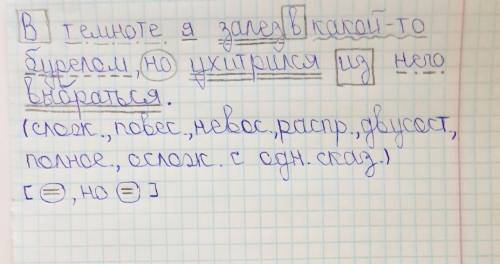 В темноте я залез в какой-то
бурелом, но ухитрился из него
выбраться.
(слож., повес., невос., распр., двусост,
полное, ослож. с одн. сказ.)
[ =, но = ]